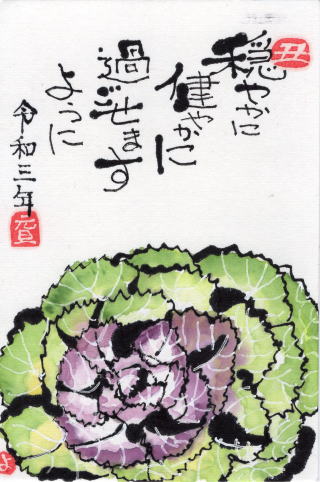 丑
穏やかに
健やかに
過ごせます
ように
令和三年
賀
よ